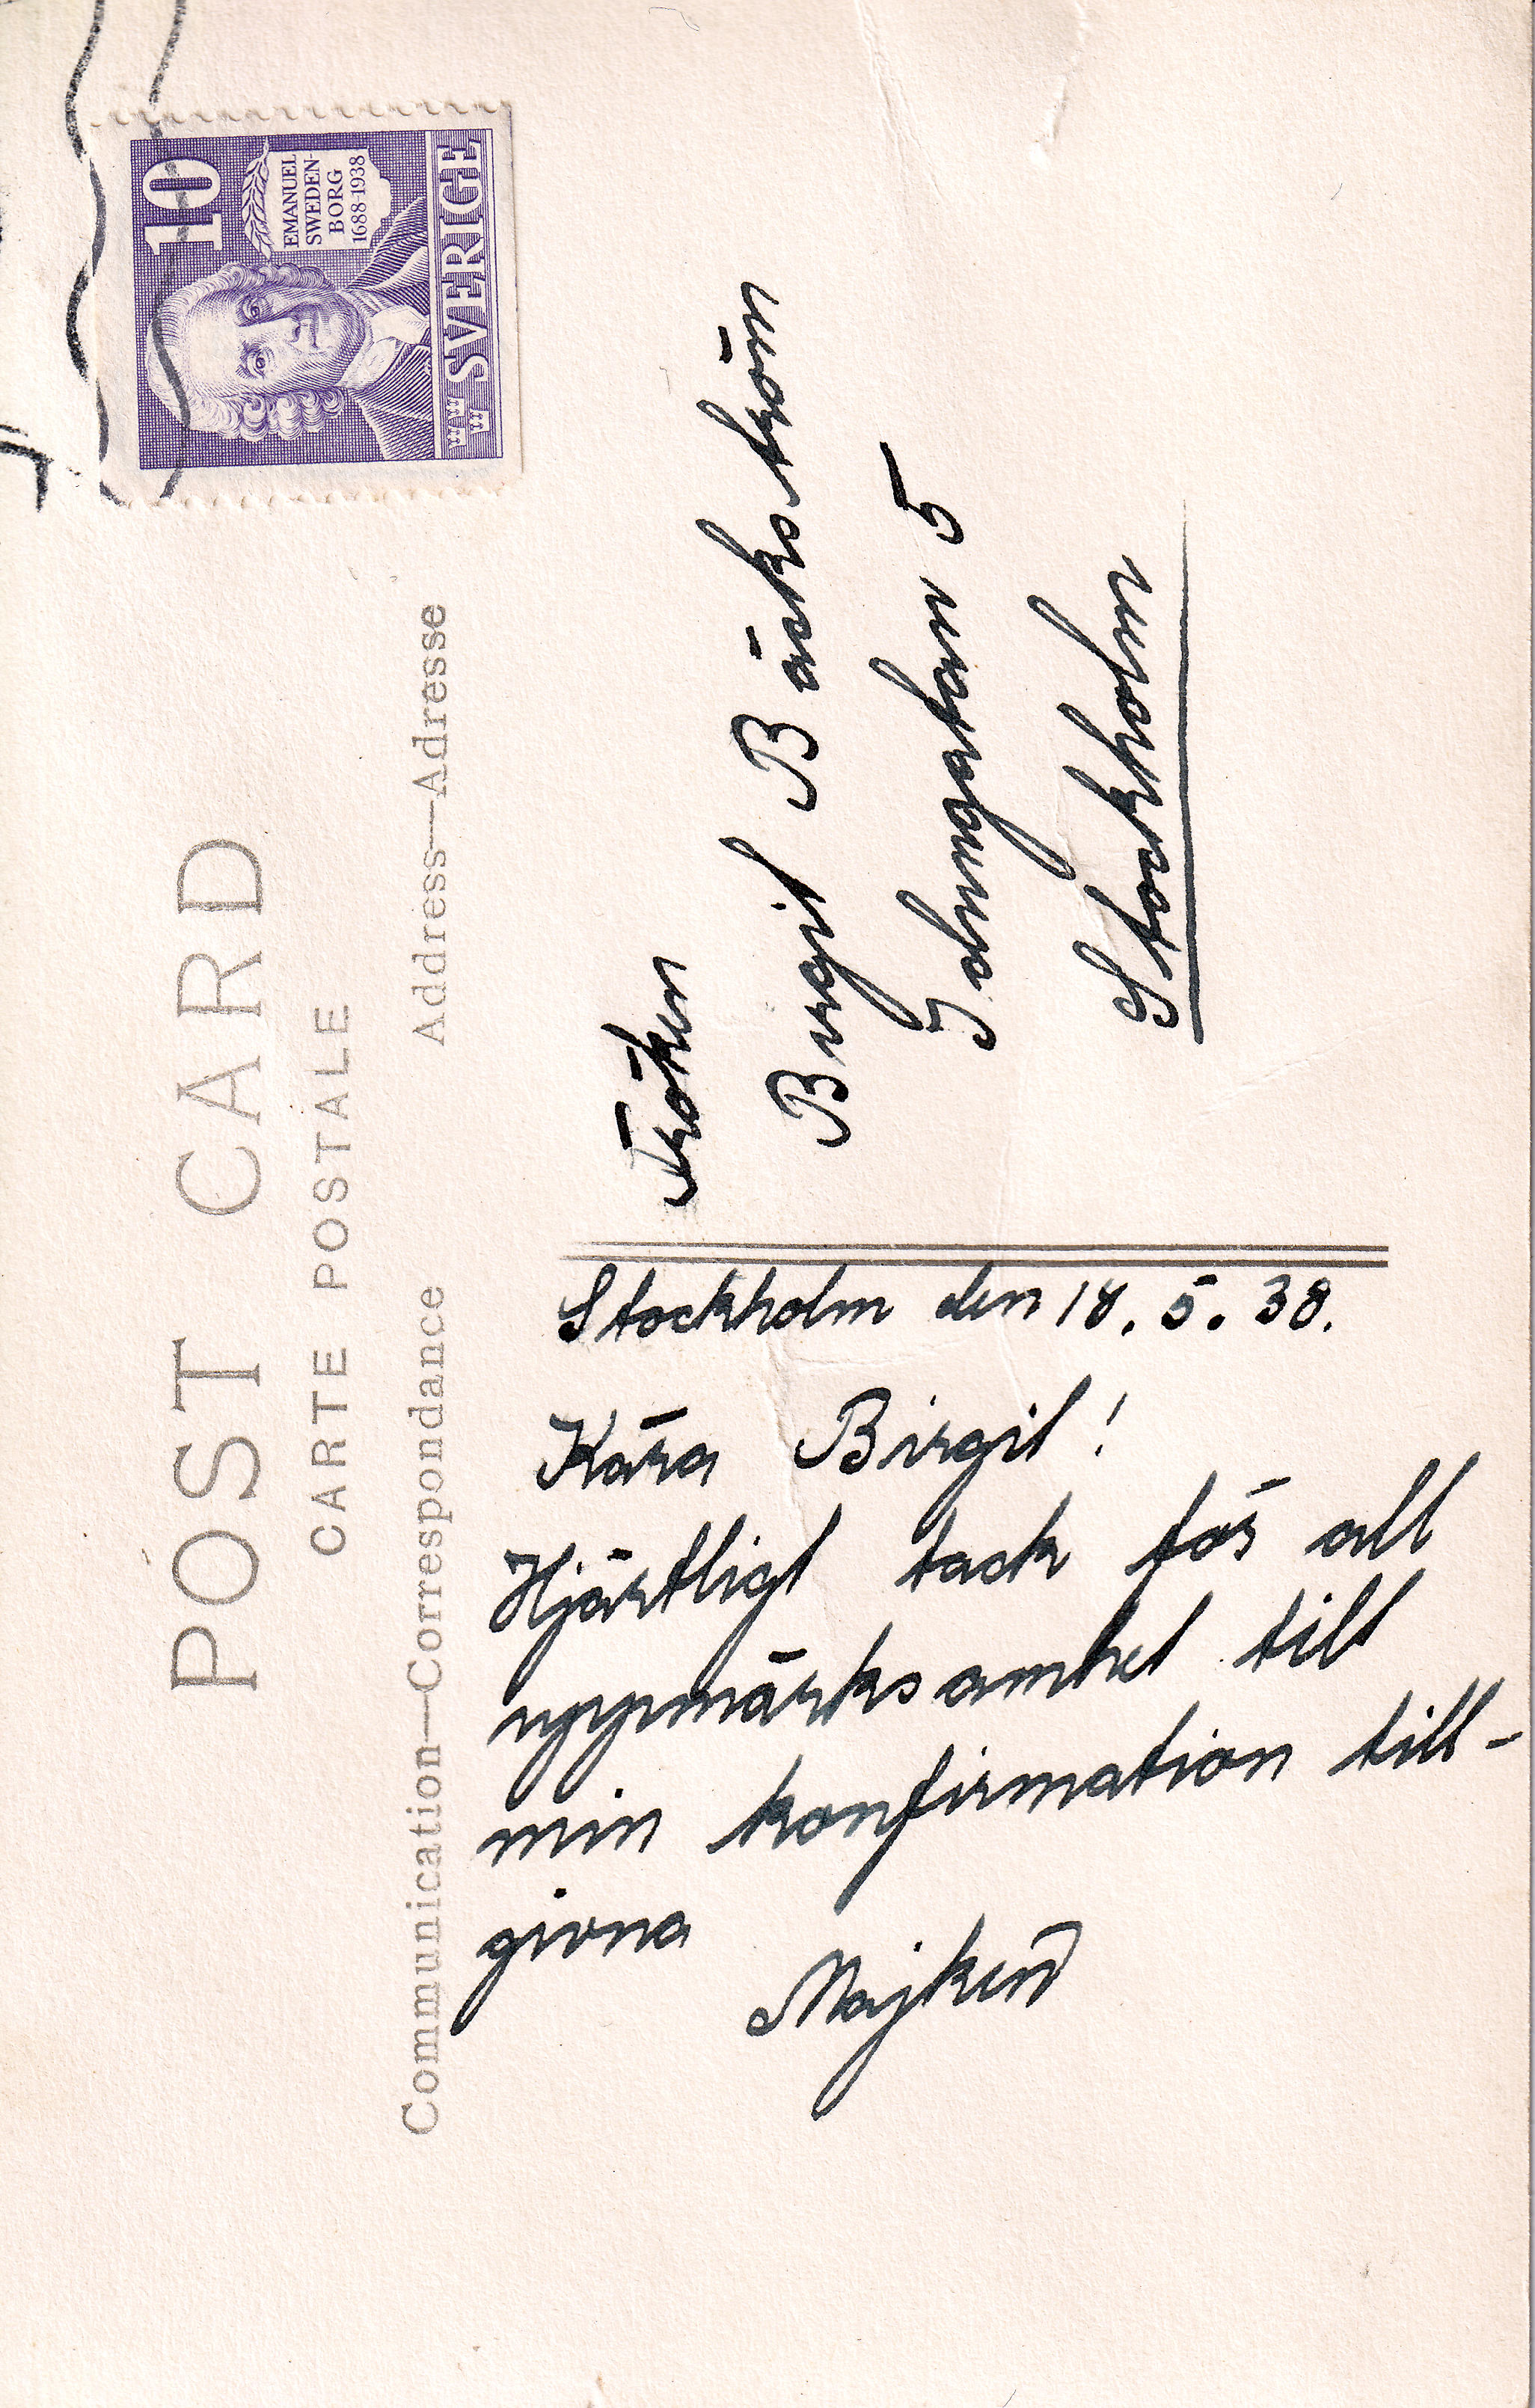 POST CARD
CARTE POSTALE
Communication—Correspondance
Address—Adresse
10
EMANUEL
SWEDEN-
BORG
1688-1938
SVERIGE
Stockholm den 18. 5. 38.
Kära Birgit!
Hjärtligt tack för all
uppmärksamhet till
min konfirmation till-
givna
Majken
Fröken
Birgit Bäckström
5
Stockholm